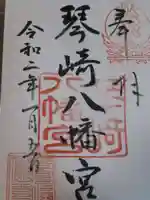 奉拝
琴崎八幡宮
令和二年一月五日
八幡宮